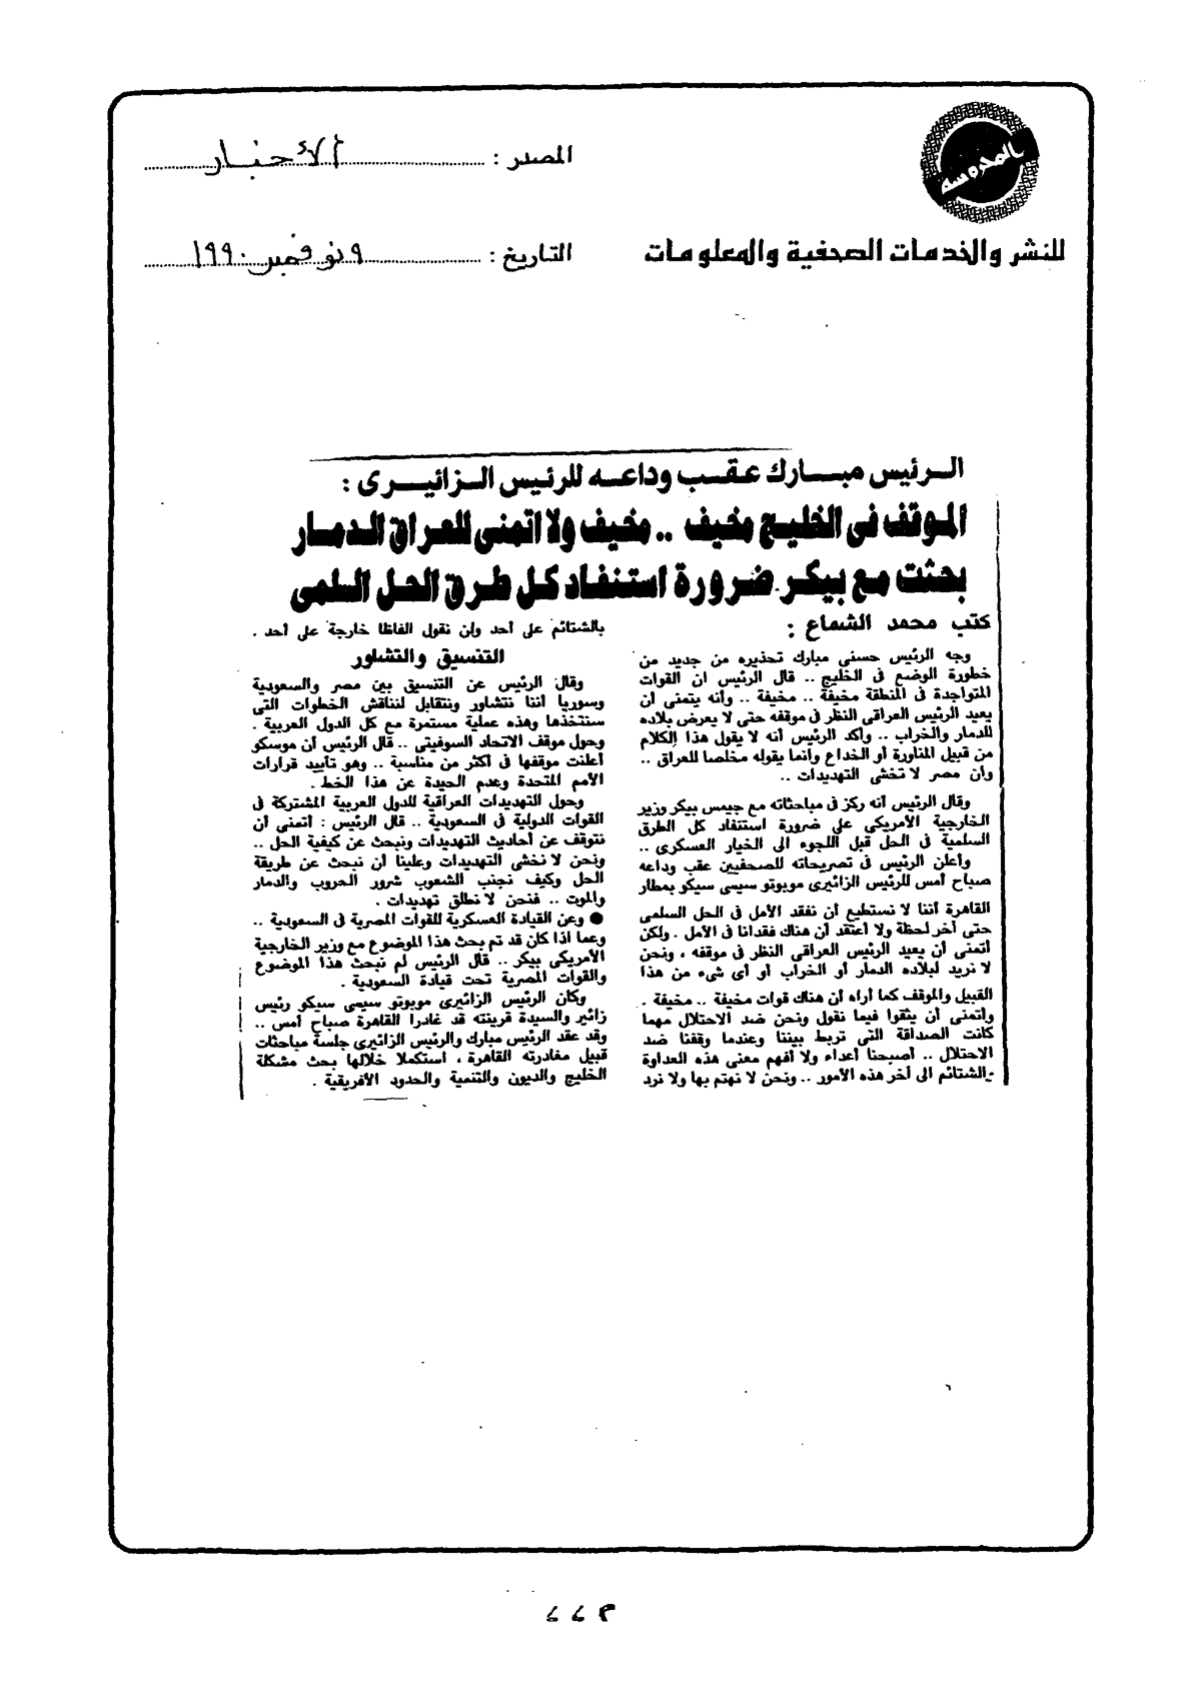 المحروسة
للنشر والخدمات الصحفية والمعلومات
المصدر : الأخبار
التاريخ : ٩ نوفمبر ١٩٩٠
الرئيس مبارك عقب وداعه للرئيس الزائيرى :
الموقف فى الخليج مخيف .. مخيف ولا اتمنى للعراق الدمار
بحثت مع بيكر ضرورة استنفاد كل طرق الحل السلمى
كتب محمد الشماع :
وجه الرئيس حسنى مبارك تحذيره من جديد من
خطورة الوضع فى الخليج .. قال الرئيس ان القوات
المتواجدة فى المنطقة مخيفة .. مخيفة .. وأنه يتمنى أن
يعيد الرئيس العراقى النظر فى موقفه حتى لا يعرض بلاده
للدمار والخراب .. وأكد الرئيس أنه لا يقول هذا الكلام
من قبيل المناورة أو الخداع وأنما يقوله مخلصا للعراق ..
وأن مصر لا تخشى التهديدات ..
وقال الرئيس أنه ركز فى مباحثاته مع جيمس بيكر وزير
الخارجية الأمريكى على ضرورة استنفاد كل الطرق
السلمية فى الحل قبل اللجوء الى الخيار العسكرى ..
وأعلن الرئيس فى تصريحاته للصحفيين عقب وداعه
صباح أمس للرئيس الزائيرى موبوتو سيسى سيكو بمطار
القاهرة أننا لا نستطيع أن نفقد الأمل فى الحل السلمى
حتى أخر لحظة ولا أعتقد أن هناك فقدانا فى الأمل . ولكن
أتمنى أن يعيد الرئيس العراقى النظر فى موقفه ، ونحن
لا نريد لبلاده الدمار أو الخراب أو أى شىء من هذا
القبيل والموقف كما أراه أن هناك قوات مخيفة .. مخيفة .
وأتمنى أن يثقوا فيما نقول ونحن ضد الاحتلال مهما
كانت الصداقة التى تربط بيننا وعندما وقفنا ضد
الاحتلال .. أصبحنا أعداء ولا أفهم معنى هذه العداوة
والشتائم الى أخر هذه الأمور .. ونحن لا نهتم بها ولا نرد
بالشتائم على أحد ولن نقول الفاظا خارجة على أحد .
التنسيق والتشاور
وقال الرئيس عن التنسيق بين مصر والسعودية
وسوريا أننا نتشاور ونتقابل لنناقش الخطوات التى
سنتخذها وهذه عملية مستمرة مع كل الدول العربية .
وحول موقف الاتحاد السوفيتى .. قال الرئيس أن موسكو
أعلنت موقفها فى أكثر من مناسبة .. وهو تأييد قرارات
الأمم المتحدة وعدم الحيدة عن هذا الخط .
وحول التهديدات العراقية للدول العربية المشتركة فى
القوات الدولية فى السعودية .. قال الرئيس : أتمنى أن
نتوقف عن أحاديث التهديدات ونبحث عن كيفية الحل ..
ونحن لا نخشى التهديدات وعلينا أن نبحث عن طريقة
الحل وكيف نجنب الشعوب شرور الحروب والدمار
والموت .. فنحن لا نطلق تهديدات .
● وعن القيادة العسكرية للقوات المصرية فى السعودية ..
وعما اذا كان قد تم بحث هذا الموضوع مع وزير الخارجية
الأمريكى بيكر .. قال الرئيس لم نبحث هذا الموضوع
والقوات المصرية تحت قيادة السعودية .
وكان الرئيس الزائيرى موبوتو سيسى سيكو رئيس
زائير والسيدة قرينته قد غادرا القاهرة صباح أمس ..
وقد عقد الرئيس مبارك والرئيس الزائيرى جلسة مباحثات
قبيل مغادرته القاهرة ، استكملا خلالها بحث مشكلة
الخليج والديون والتنمية والحدود الأفريقية .